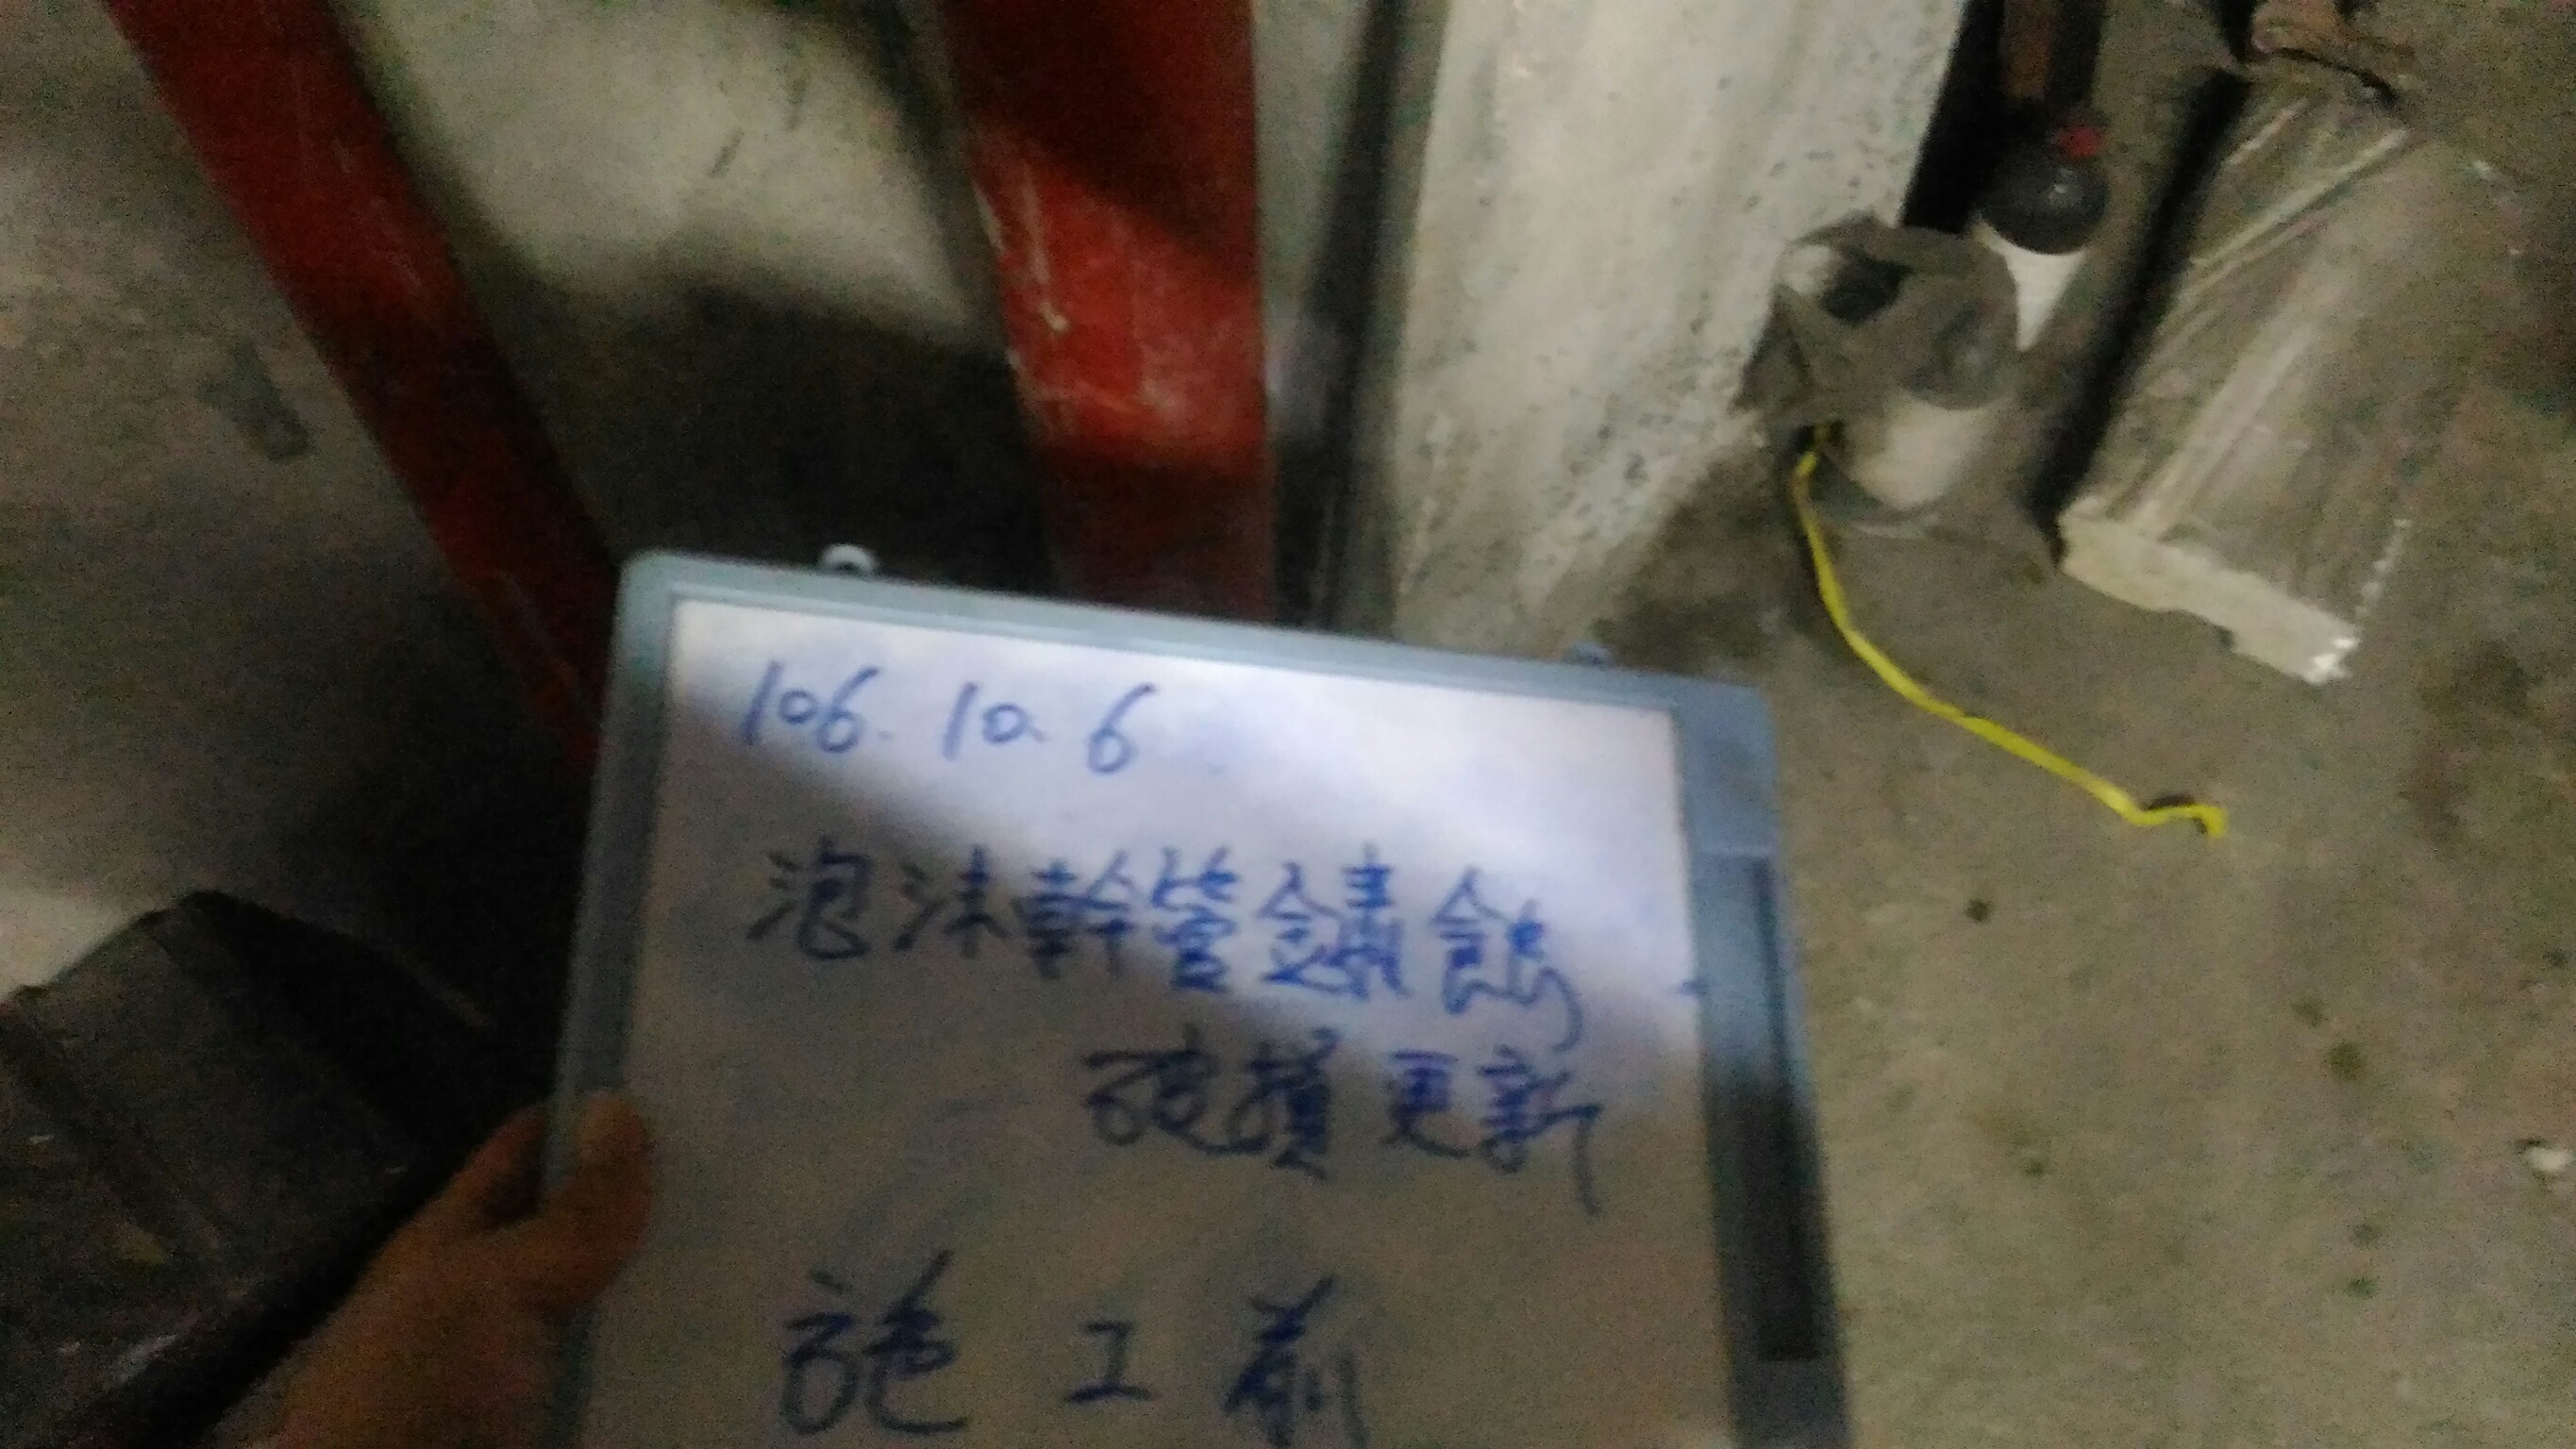 106.10.6
泡沫幹管鏽蝕
破損更新
施工前